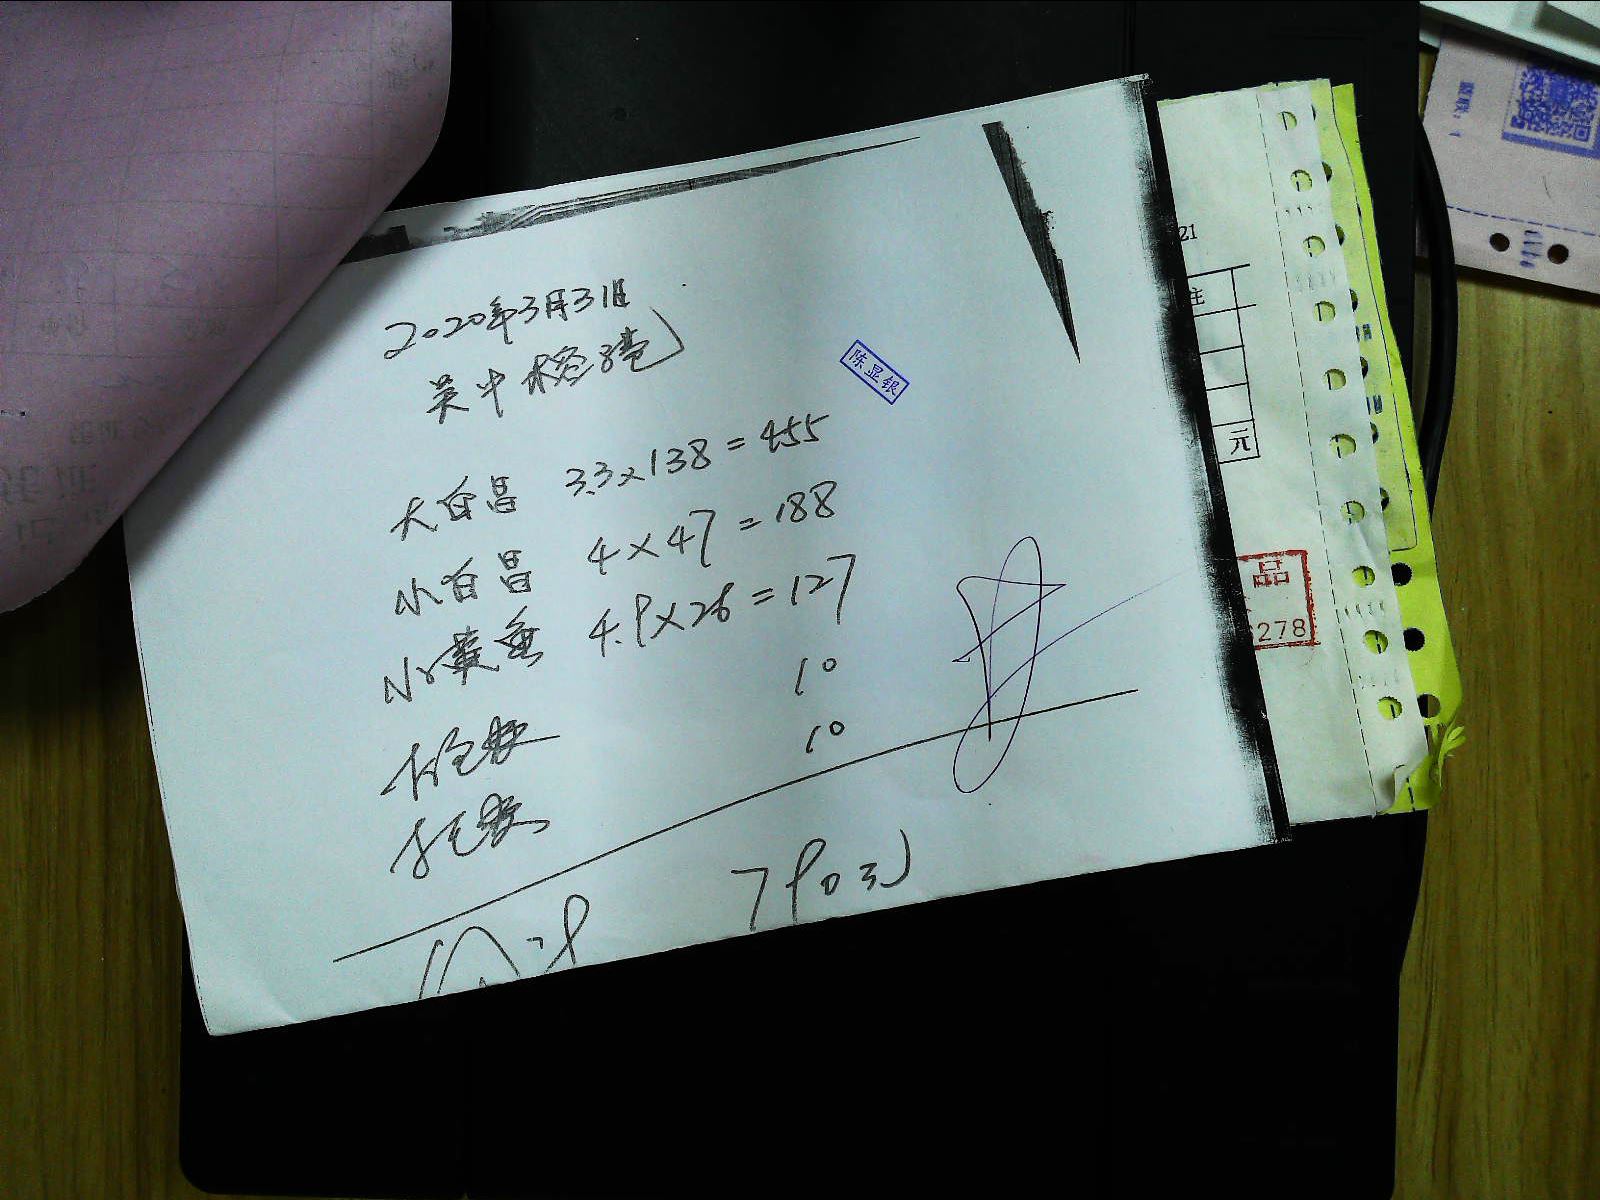 2020年3月31日
吴中
陈显银
大白昌 3.3×138=455
小白昌 4×47=188
小黄鱼 4.9×26=127
10
10
合计 790元
21
注
元
品
278